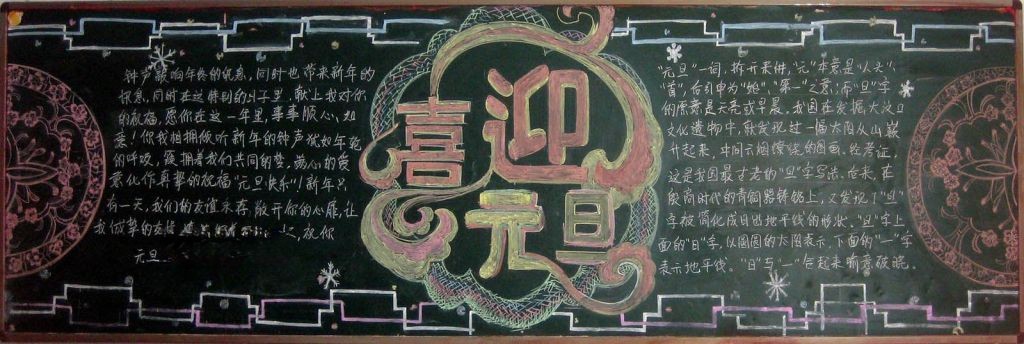 钟声敲响年终的讯息,同时也带来新年的
讯息,同时在这特别的日子里,献上我对你
的祝福,愿你在这一年里,事事顺心,如
意!你我相拥倾听新年的钟声犹如年轮
的呼吸,簇拥着我们共同的梦,满心的
意化作真挚的祝福"元旦快乐"!新年只
有一天,我们的友谊永存,敞开你的心扉,让
我做挚的友谊
元旦
喜迎
元旦
"元旦"一词,拆开来讲,"元"本意是"人头"、
"首",后引申为"始"、"第一"之意;而"旦"字
的原意是天亮或早晨。我国在发掘大汶口
文化遗物中,就发现过一幅太阳从山巅
升起来,中间云烟缭绕的图画。经考证,
这是我国最古老的"旦"字写法。后来,在
殷商时代的青铜器铸铭上,又发现了"旦"
字被简化成日出地平线的形状。"旦"字上
面的"日"字,以圆圆的太阳表示,下面的"一"字
表示地平线。"日"与"一"合起来喻意破晓。